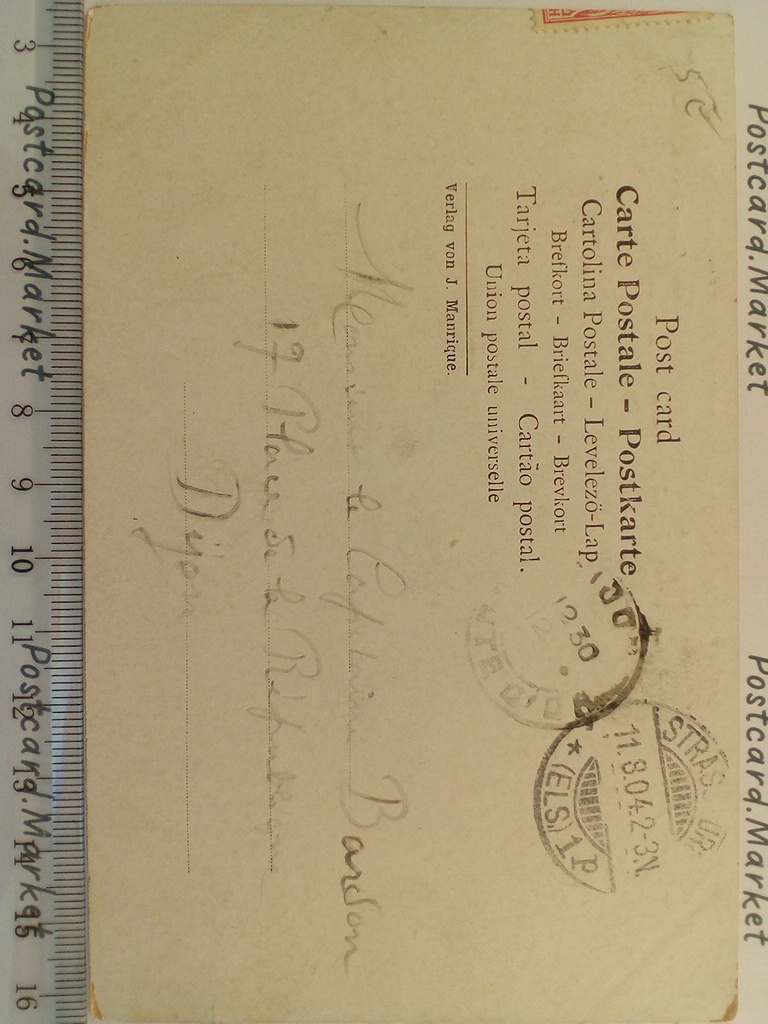 5€
Post card
Carte Postale – Postkarte
Cartolina Postale – Levelező-Lap
Brefkort – Briefkaart – Brevkort
Tarjeta postal - Cartão postal.
Union postale universelle
Verlag von J. Manrique.
12 30
STRAS UR
11.8.04.2-3N.
* (ELS.) 1 P
Monsieur le Capitaine Bardon
17 Place de la République
Dijon
3 4 5 6 7 8 9 10 11 12 13 14 15 16
Postcard.Market
Postcard.Market
Postcard.Market
Postcard.Market